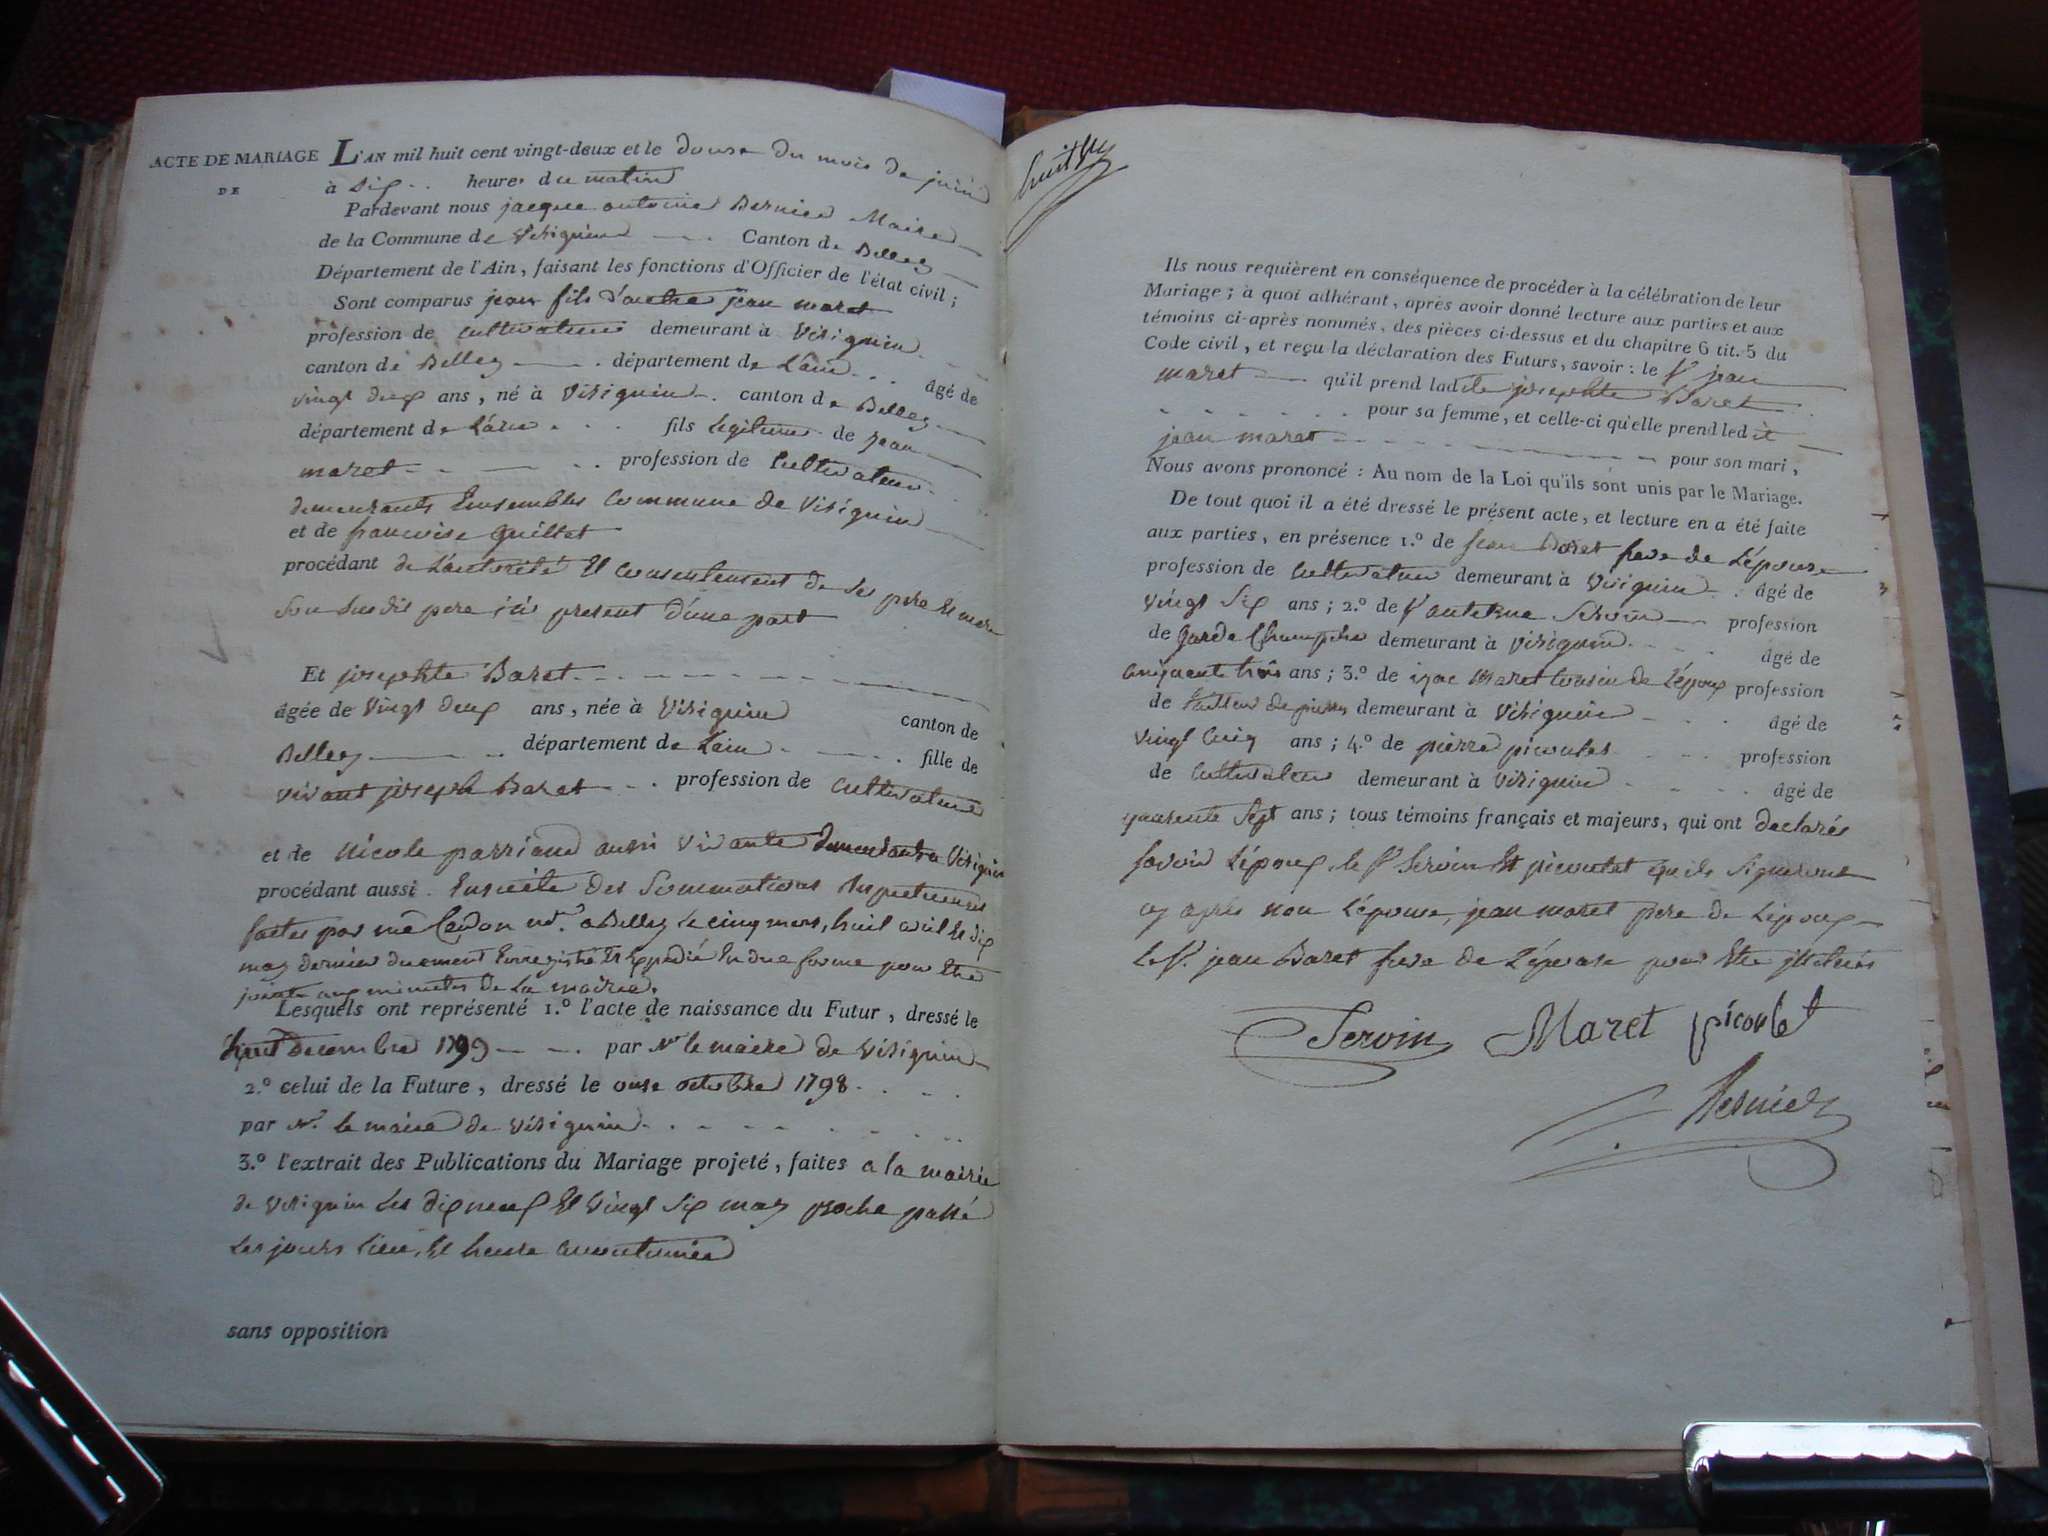 ACTE DE MARIAGE
DE
L'AN mil huit cent vingt-deux et le douse du mois de juin
à dix heures du matin
Pardevant nous jacque antoine Maire
de la Commune de Virignin Canton de Belley
Département de l'Ain, faisant les fonctions d'Officier de l'état civil;
Sont comparus jean fils d'autre jean maret
profession de cultivateur demeurant à Virignin
canton de Belley département de L'ain âgé de
vingt deux ans, né à Virignin canton de Belley
département de L'ain fils legitime de jean
maret profession de Cultivateur
demeurants Ensembles Commune de Virignin
et de francoise Guillet
procédant de L'autorité Et Consentement de Ses pere Et mere
Son Susdit pere ici present d'une part
Et josephte Baret
âgée de Vingt deux ans, née à Virignin canton de
Belley département de Lain fille de
vivant joseph Baret profession de Cultivateur
et de Nicole parriand aussi Vivante demeurant a Virignin
procédant aussi Ensuite des Sommations Respectueuses
faites par me a Belley Le cinq mars, huit avril Et dix
may dernier duement Enregistré Et Expedié En due forme pour Etre
jointe aux minutes de La mairie.
Lesquels ont représenté 1.º l'acte de naissance du Futur, dressé le
huit Decembre 1799 par Mr le maire de Virignin
2.º celui de la Future, dressé le onse octobre 1798
par Mr le maire de Virignin
3.º l'extrait des Publications du Mariage projeté, faites a la mairie
de Virignin Les dix neuf Et Vingt Six may proche passé
Les jours Lieu, Et heure accoutumée
sans opposition
huit
Ils nous requièrent en conséquence de procéder à la célébration de leur
Mariage; à quoi adhérant, après avoir donné lecture aux parties et aux
témoins ci-après nommés, des pièces ci-dessus et du chapitre 6 tit. 5 du
Code civil, et reçu la déclaration des Futurs, savoir: le Sr jean
maret qu'il prend ladite josephte Baret
pour sa femme, et celle-ci qu'elle prend ledit
jean maret pour son mari,
Nous avons prononcé: Au nom de la Loi qu'ils sont unis par le Mariage.
De tout quoi il a été dressé le présent acte, et lecture en a été faite
aux parties, en présence 1.º de jean Baret frere de L'épouse
profession de Cultivateur demeurant à Virignin âgé de
vingt Six ans; 2.º de Sr Servin profession
de Garde Champetre demeurant à Virignin âgé de
cinquante trois ans; 3.º de izac Maret Cousin de L'époux profession
de tailleur de pierres demeurant à Virignin âgé de
vingt Cinq ans; 4.º de pierre picoulet profession
de Cultivateur demeurant à Virignin âgé de
quarente Sept ans; tous témoins français et majeurs, qui ont declarés
savoir L'époux, le Sr Servin Et picoulet qu'ils Signeront
cy après non L'épouse, jean maret pere de L'époux
Le Sr jean Baret frere de L'épouse pour Etre jlletrés
Servin Maret picoulet